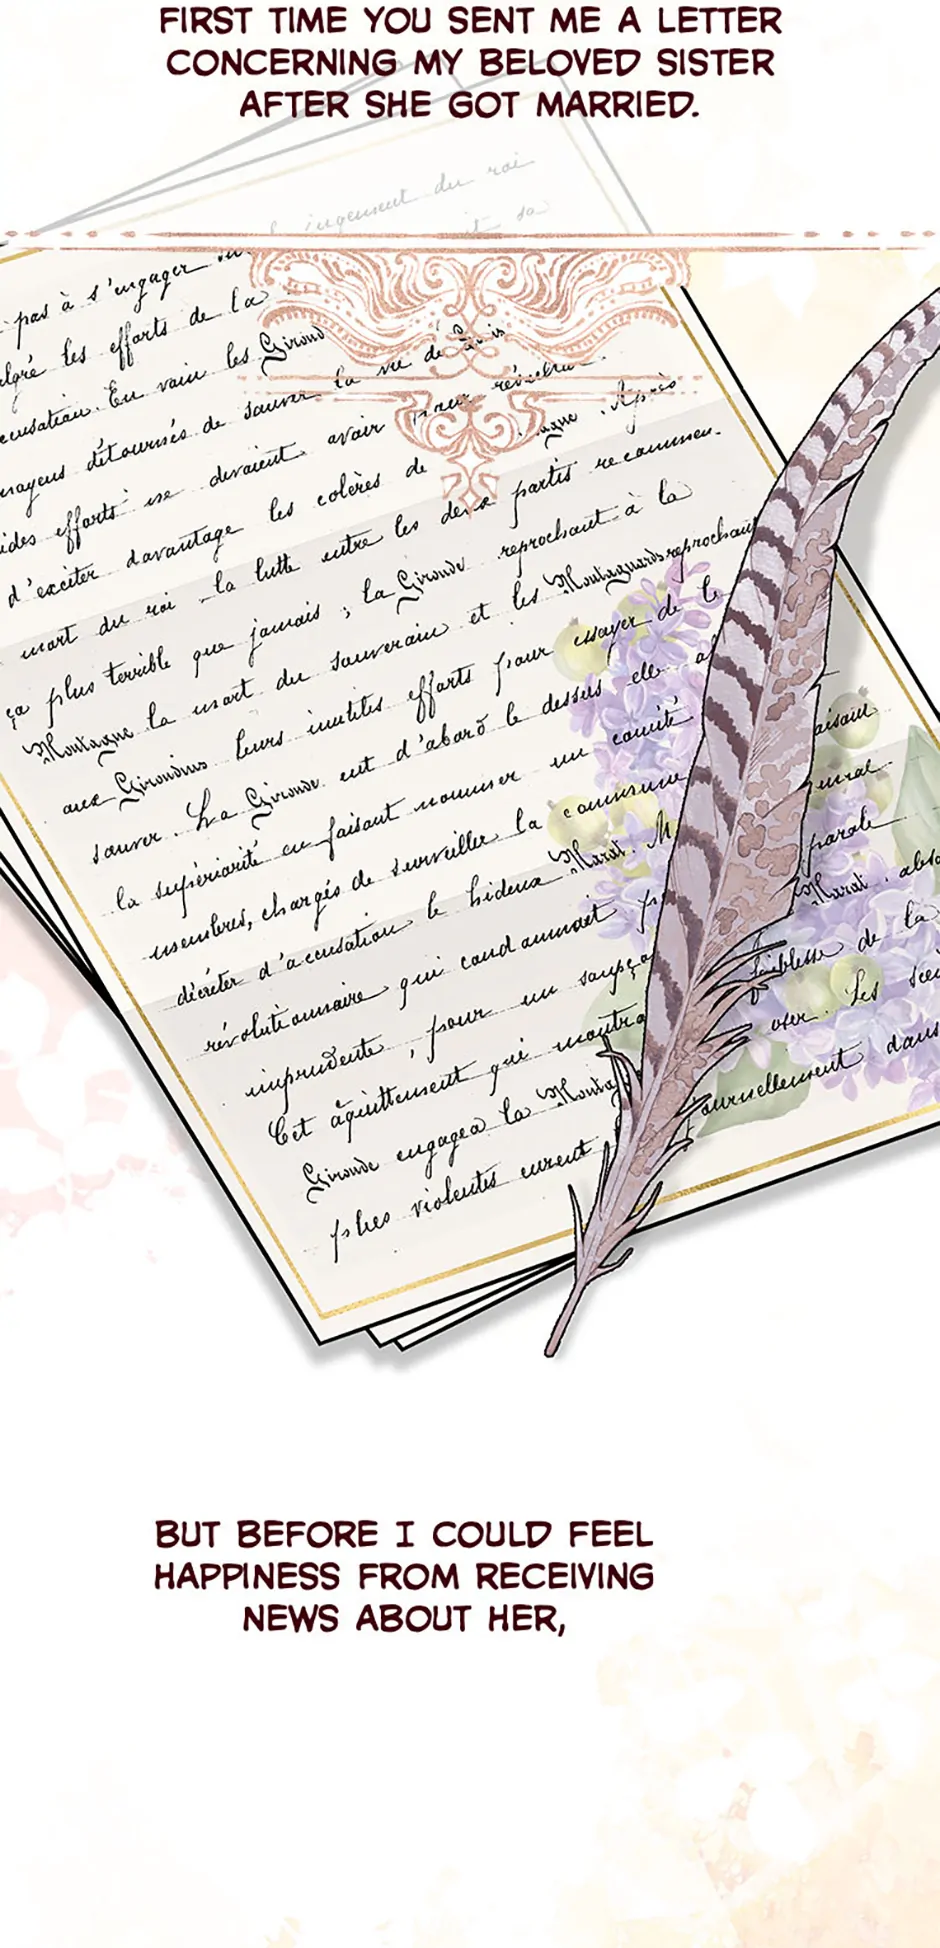 FIRST TIME YOU SENT ME A LETTER
CONCERNING MY BELOVED SISTER
AFTER SHE GOT MARRIED.
du roi
pas à s'engager
les efforts de la
En vain les Girond
détournés de sauver la vie de
efforts ne devaient avoir pour
d'exciter davantage les colères de Après
mort du roi la lutte entre les deux partis recommen
ça plus terrible que jamais ; la Gironde reprochant à la
Montagne la mort du souverain et les Montagnards reprochant
aux Girondins leurs inutiles efforts pour essayer de le
sauver. La Gironde eut d'abord le dessus elle
la supériorité en faisant nommer un comité
membres, chargés de surveiller la commune
décréter d'accusation le hideux Marat. parole
révolutionnaire qui condamnait Marat
imprudente, pour un soupço faiblesse de la
Cet acquittement qui montra oser. Les
Gironde engagea la Montag journellement dans
plus violentes eurent
BUT BEFORE I COULD FEEL
HAPPINESS FROM RECEIVING
NEWS ABOUT HER,